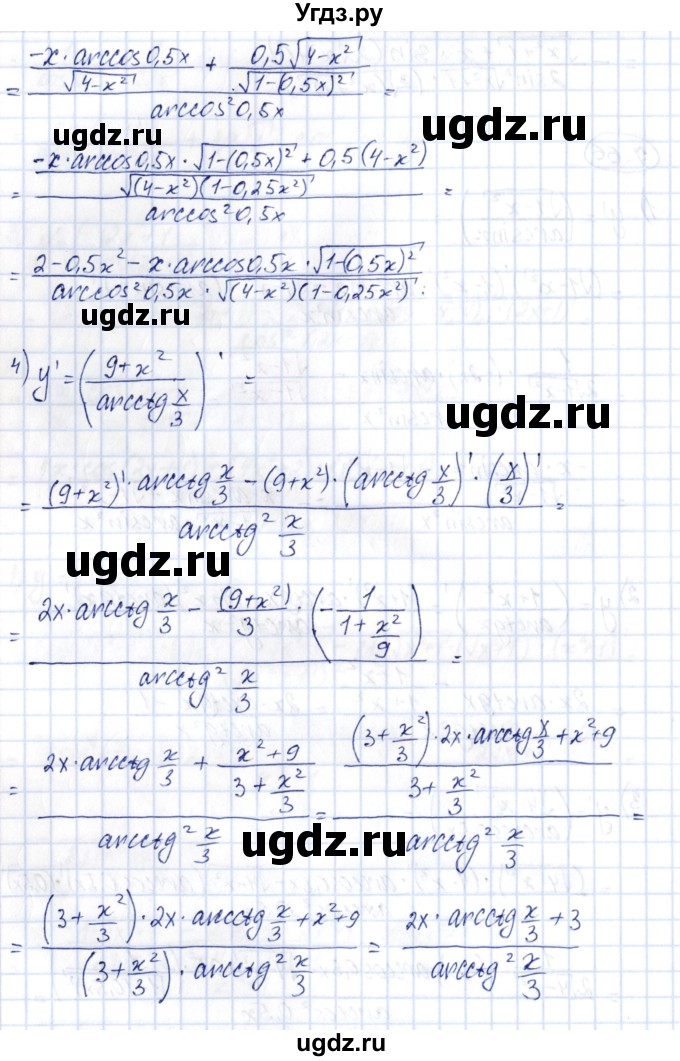 Угдз.ру
= (-x·arccos0,5x / √(4-x²) + 0,5√(4-x²) / √(1-(0,5x)²)) / arccos²0,5x =
= (-x·arccos0,5x·√(1-(0,5x)²) + 0,5(4-x²) / √((4-x²)(1-0,25x²))) / arccos²0,5x =
= (2-0,5x²-x·arccos0,5x·√(1-(0,5x)²)) / (arccos²0,5x·√((4-x²)(1-0,25x²))).
ugdz.ru
4) y' = ((9+x²) / (arcctg x/3))' =
ugdz.ru
= ((9+x²)'·arcctg x/3 - (9+x²)·(arcctg x/3)'·(x/3)') / (arcctg² x/3) =
ugdz.ru
ugdz.ru
= (2x·arcctg x/3 - (9+x²)/3·(-1/(1+x²/9))) / (arcctg² x/3) =
ugdz.ru
= (2x·arcctg x/3 + (x²+9)/(3+x²/3)) / (arcctg² x/3) = (((3+x²/3)·2x·arcctg x/3+x²+9) / (3+x²/3)) / (arcctg² x/3) =
ugdz.ru
= ((3+x²/3)·2x·arcctg x/3+x²+9) / ((3+x²/3)·arcctg² x/3) = (2x·arcctg x/3+3) / (arcctg² x/3)
ugdz.ru
ugdz.ru
ugdz.ru